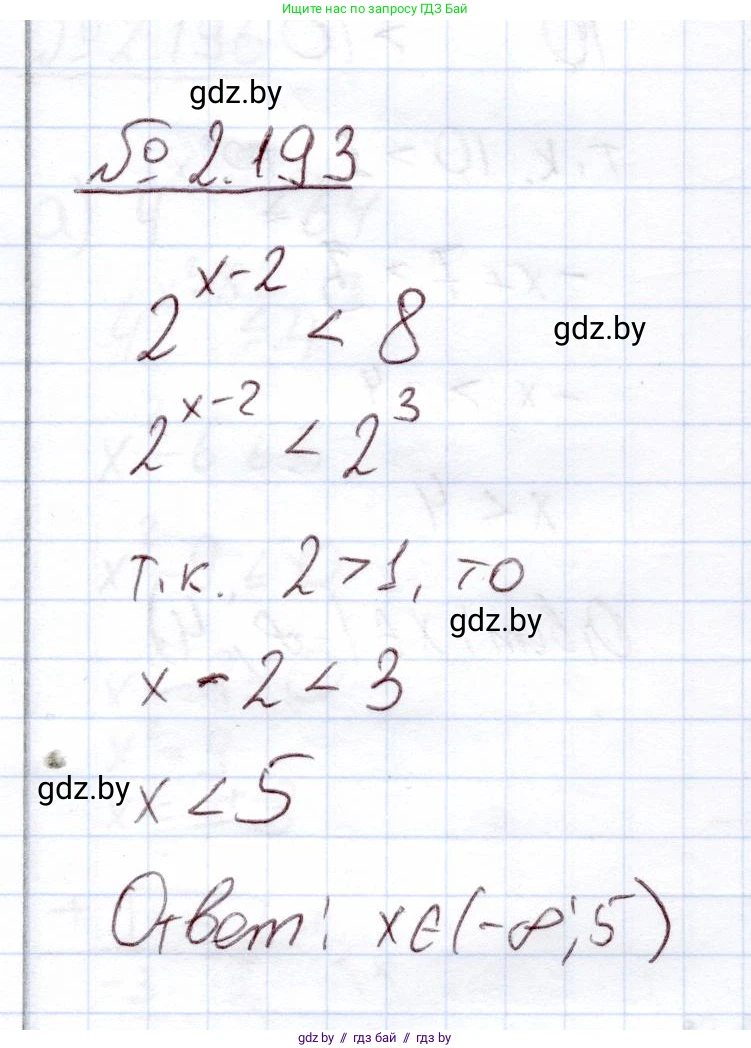 Ищите нас по запросу ГДЗ Бай
gdz.by
№ 2.193
2^{x-2} < 8
gdz.by
2^{x-2} < 2^3
т.к. 2 > 1, то
gdz.by
x - 2 < 3
gdz.by
x < 5
Ответ: x ∈ (-∞; 5)
gdz.by // гдз бай // гдз by